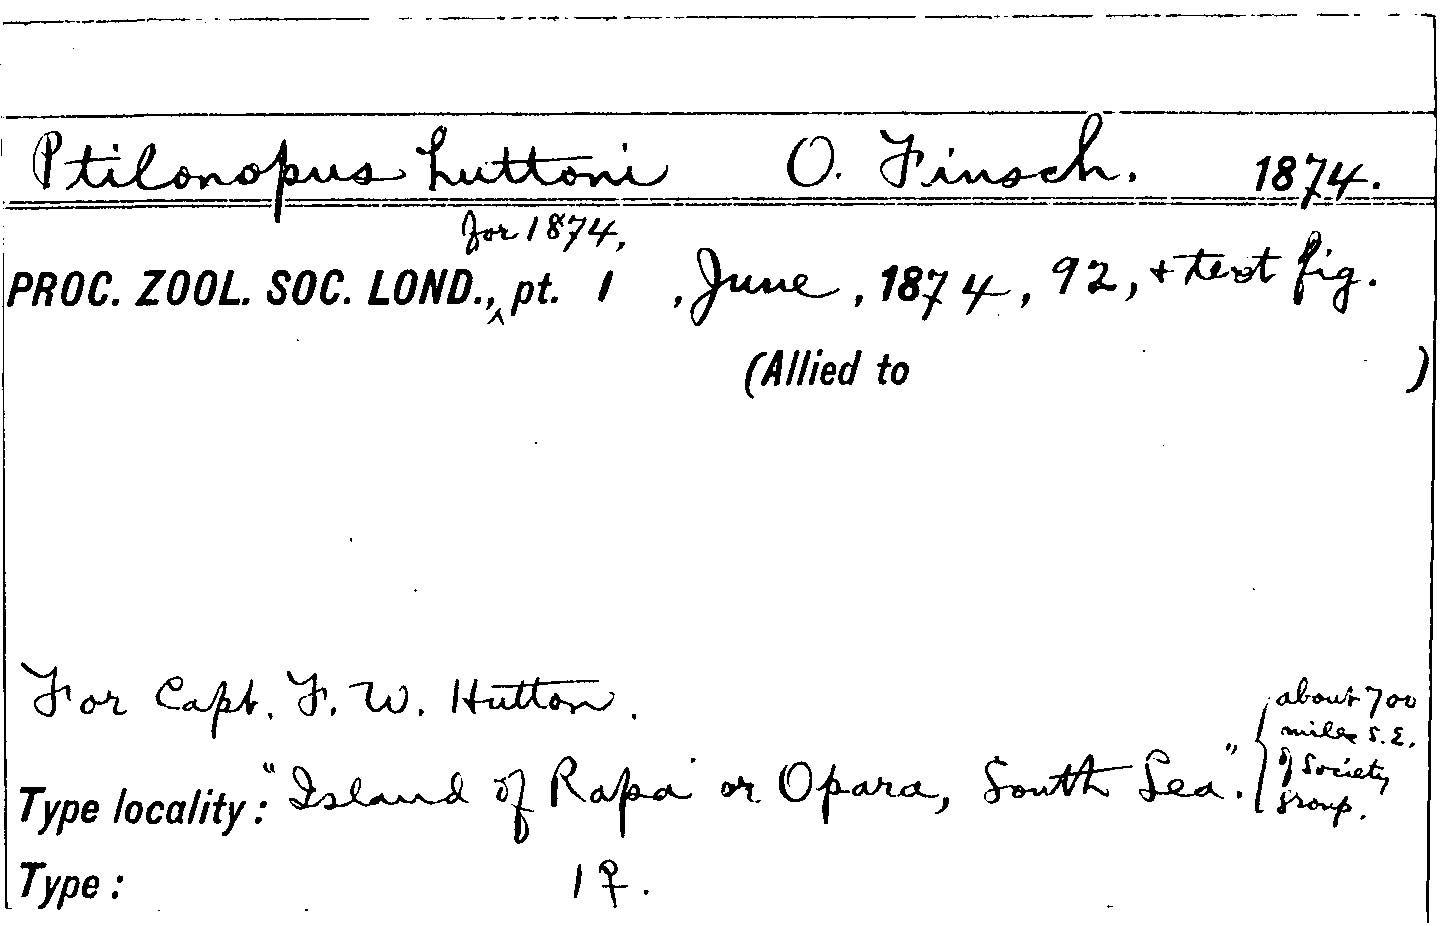 Ptilonopus huttoni O. Finsch. 1874.
for 1874,
PROC. ZOOL. SOC. LOND., ^ pt. 1 , June, 1874, 92, + text fig.
(Allied to )
For Capt. F. W. Hutton.
Type locality: "Island of Rapa or Opara, South Sea".
{about 700
miles S.E.
of Society
group.
Type: 1♀.